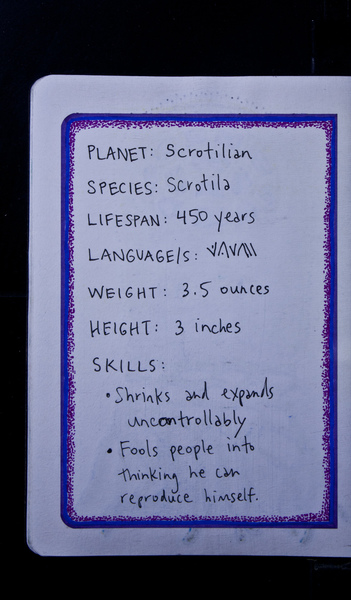 PLANET: Scrotilian
SPECIES: Scrotila
LIFESPAN: 450 years
LANGUAGE/S:
WEIGHT: 3.5 ounces
HEIGHT: 3 inches
SKILLS:
• Shrinks and expands
uncontrollably
• Fools people into
thinking he can
reproduce himself.